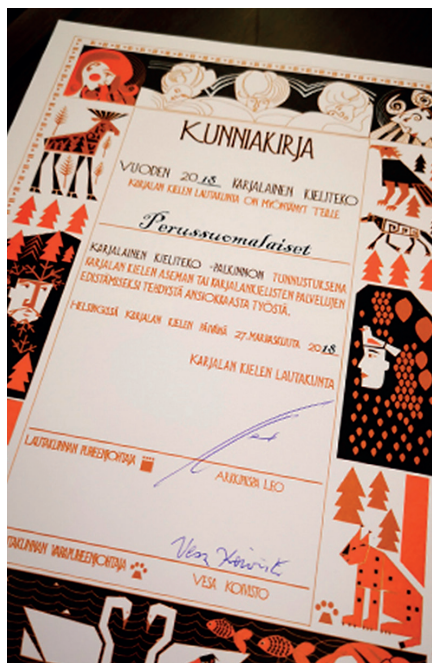 KUNNIAKIRJA
VUODEN 2018 KARJALAINEN KIELITEKO
KARJALAN KIELEN LAUTAKUNTA ON MYÖNTÄNYT TEILLE
Perussuomalaiset
KARJALAINEN KIELITEKO -PALKINNON TUNNUSTUKSENA
KARJALAN KIELEN ASEMAN TAI KARJALANKIELISTEN PALVELUJEN
EDISTÄMISEKSI TEHDYSTÄ ANSIOKKAASTA TYÖSTÄ.
HELSINGISSÄ KARJALAN KIELEN PÄIVÄNÄ 27.MARRASKUUTA 2018
KARJALAN KIELEN LAUTAKUNTA
Leo
LAUTAKUNNAN PUHEENJOHTAJA
ARKKIPIISPA LEO
Vesa Koivisto
TAKUNNAN VARAPUHEENJOHTAJA
VESA KOIVISTO